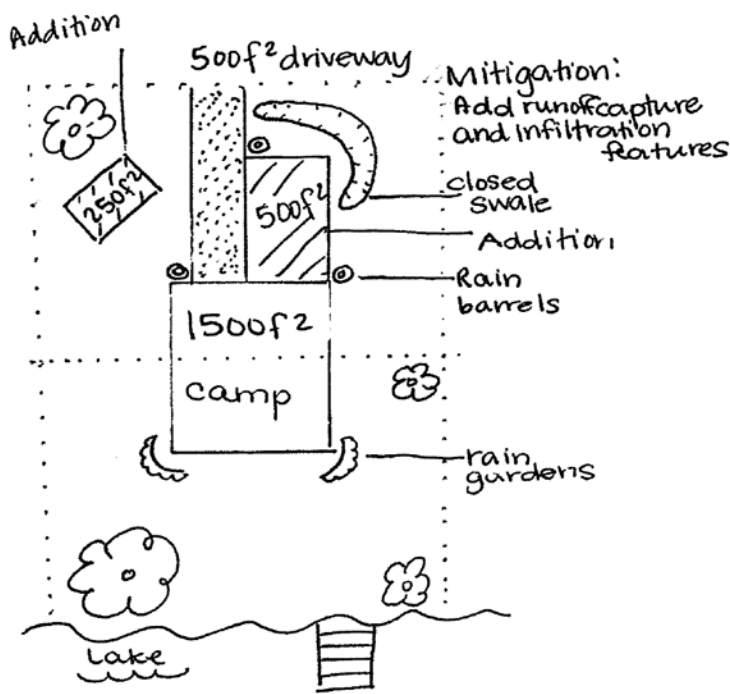 Addition
500f² driveway
Mitigation:
Add runoff capture
and infiltration
features
250f²
500f²
closed
swale
Addition
Rain
barrels
1500f²
camp
rain
gardens
Lake